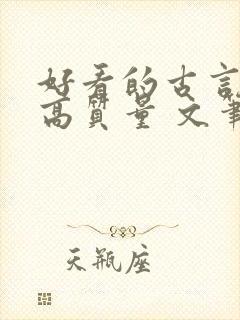 好看的古言
高质量 文笔
天瓶座